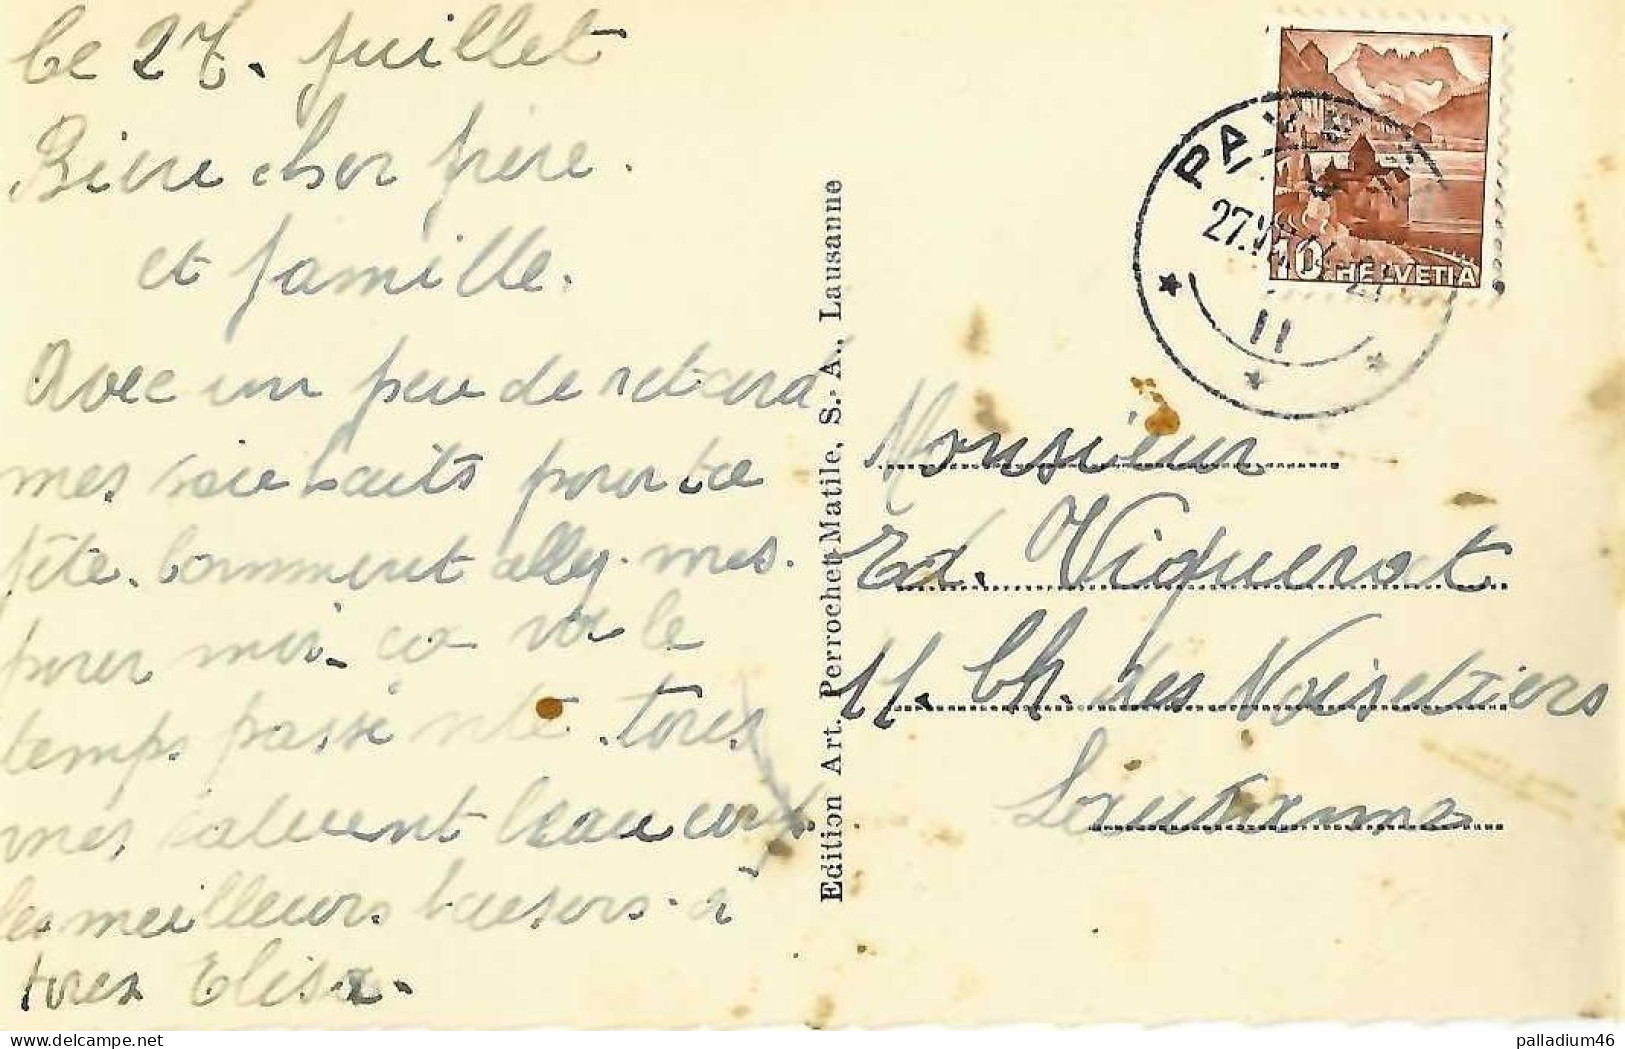 le 27. juillet
Biene cher frère.
et famille.
Avec un peu de retard
mes souhaits pour ta
fête. Comment allez-mes.
pour moi. ça va le
temps passe vite. tores
mes saluent beaucoup
les meilleurs baesers. à
tores Elisa.
Edition Art. Perrochet-Matile, S. A., Lausanne
PAY
27.V
II
10 HELVETIA
Monsieur
Ed. Viquerat
11. Ch. des Noisetiers
Lausanne
palladium46